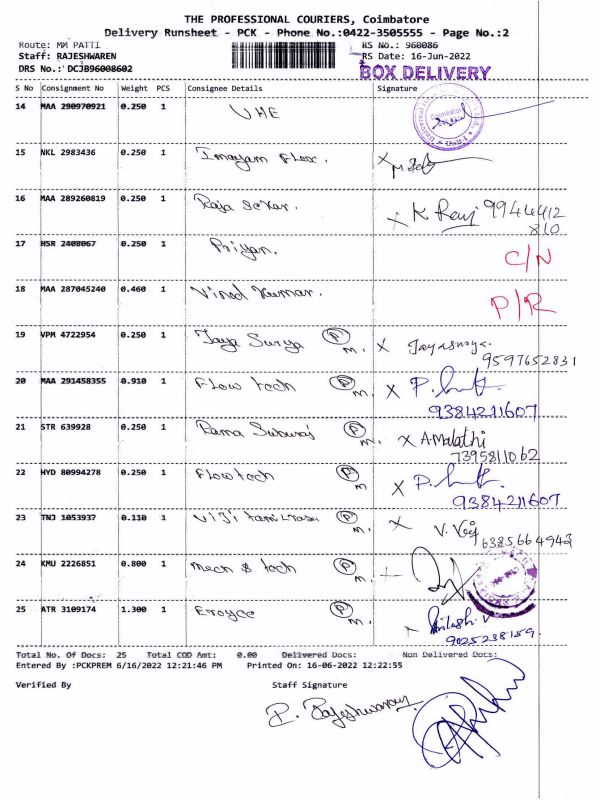 THE PROFESSIONAL COURIERS, Coimbatore
Delivery Runsheet - PCK - Phone No.:0422-3505555 - Page No.:2
Route: MM PATTI RS No.: 960086
Staff: RAJESHWAREN RS Date: 16-Jun-2022
DRS No.: DCJB96008602 BOX DELIVERY
S No Consignment No Weight PCS Consignee Details Signature
14 MAA 290970921 0.250 1 VHE
15 NKL 2983436 0.250 1 Imayam Flex.
16 MAA 289260819 0.250 1 Raja Sekar. X K Renj 9944412
810
17 HSR 2408067 0.250 1 Priyan. C/N
18 MAA 287045240 0.460 1 Vinod Kumar. P/R
19 VPM 4722954 0.250 1 Jaya Surya P M. X Jayasurya.
9597652831
20 MAA 291458355 0.910 1 Flow tech P M. X
9384211607
21 STR 639928 0.250 1 Rama Suburaj P M. X A Malathi
7395811062
22 HYD 80994278 0.250 1 Flowtech P M X
9384211607
23 TNJ 1053937 0.110 1 Viji P M. X V. Viji
6385664943
24 KMU 2226851 0.800 1 Mech & tech P M.
25 ATR 3109174 1.300 1 Eroyce P M. X
9025238159.
Total No. Of Docs: 25 Total COD Amt: 0.00 Delivered Docs: Non Delivered Docs:
Entered By :PCKPREM 6/16/2022 12:21:46 PM Printed On: 16-06-2022 12:22:55
Verified By Staff Signature
P. Rajeshwaran